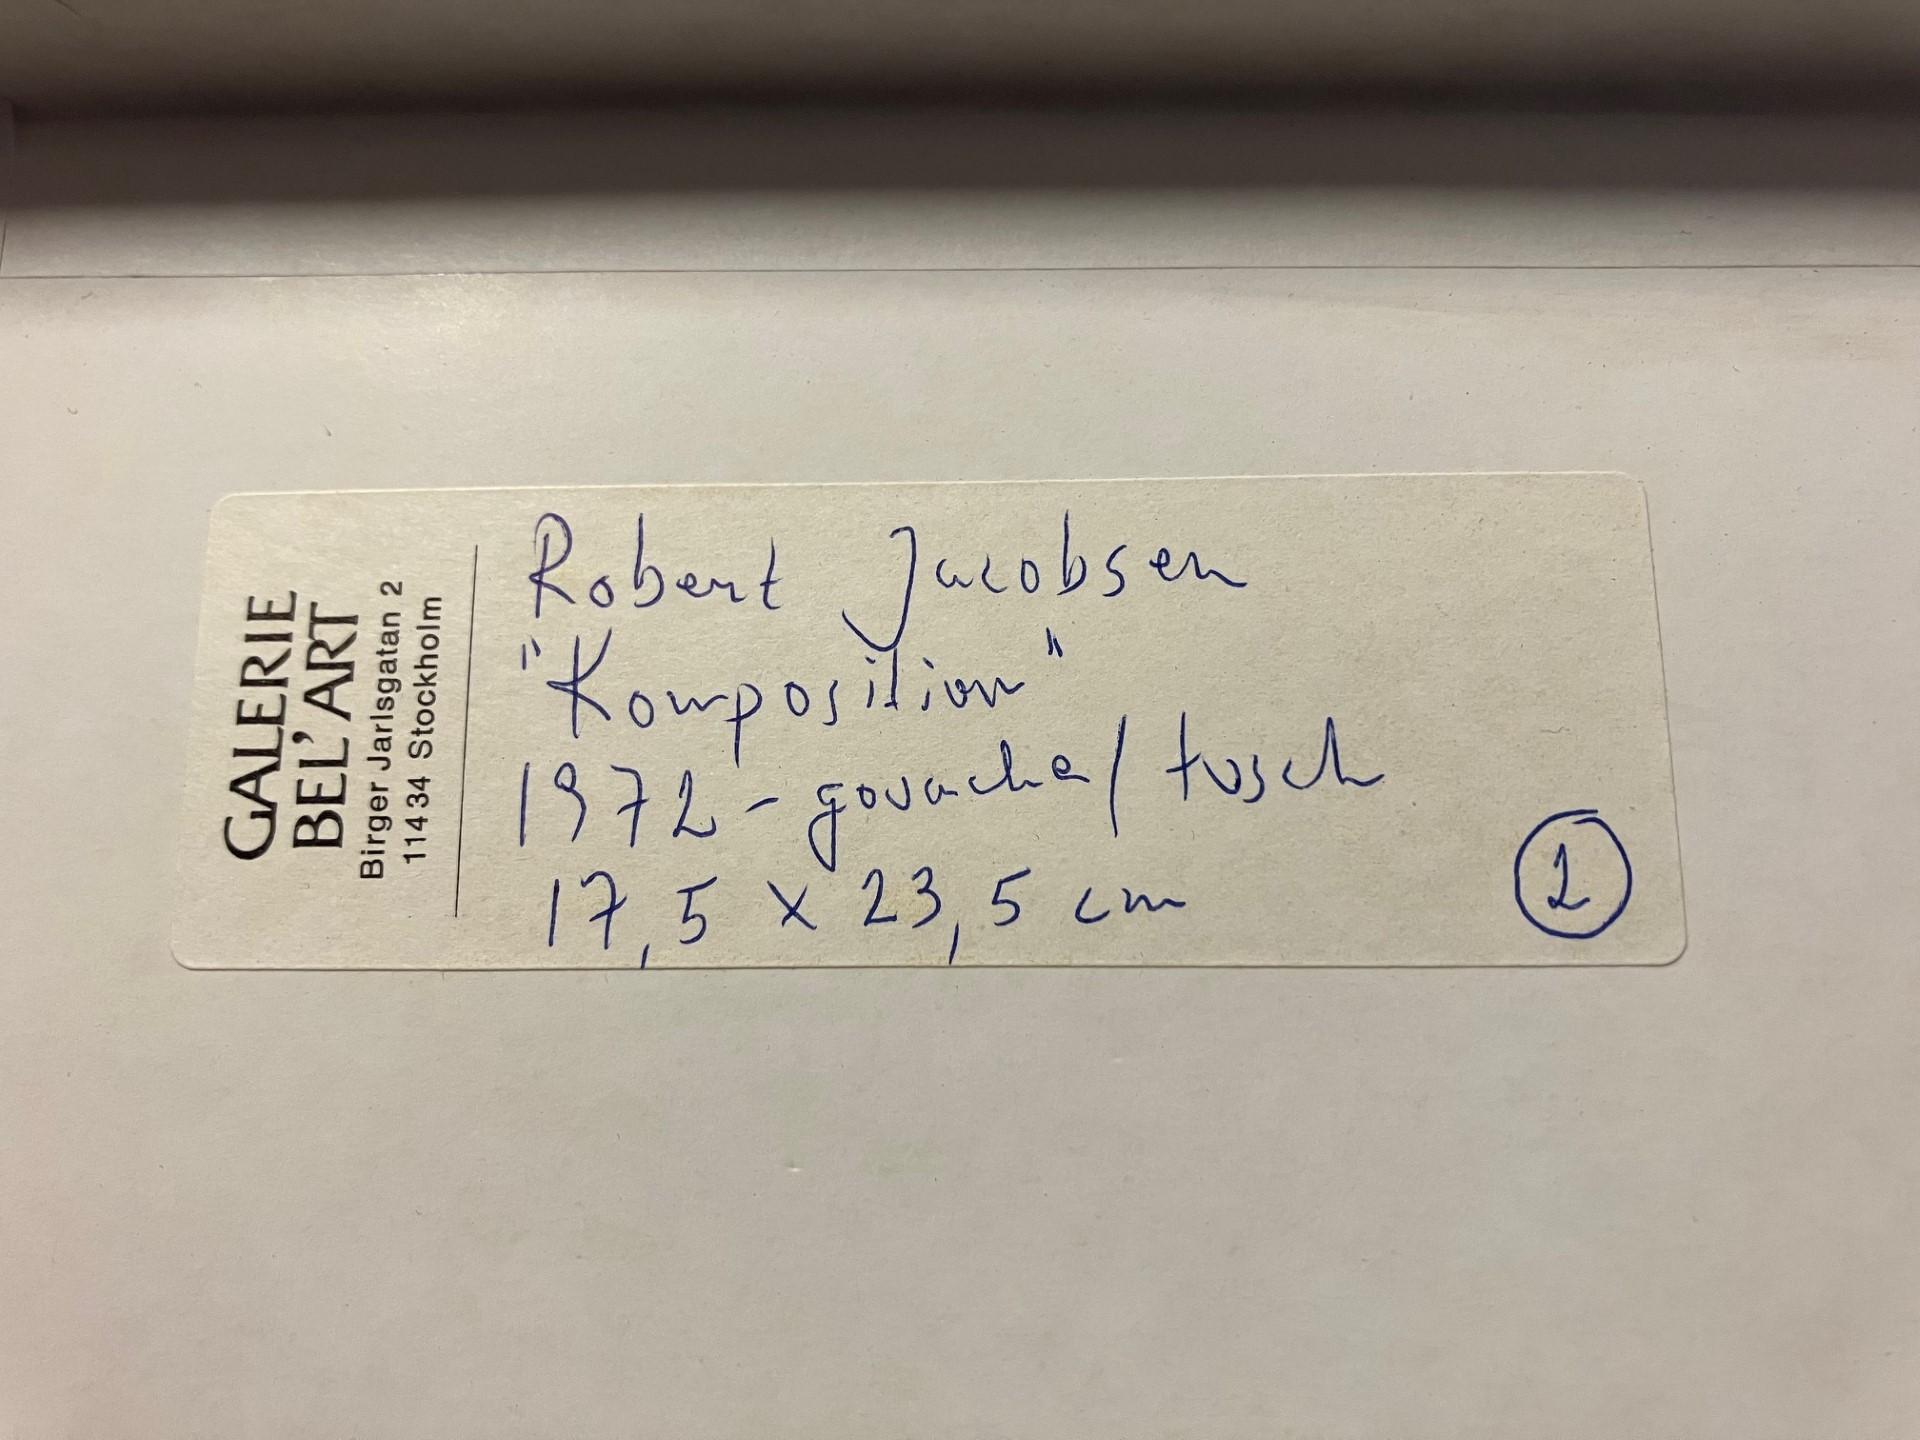 GALERIE
BEL'ART
Birger Jarlsgatan 2
114 34 Stockholm
Robert Jacobsen
"Komposition"
1972 - gouache / tusch
17,5 x 23,5 cm
2